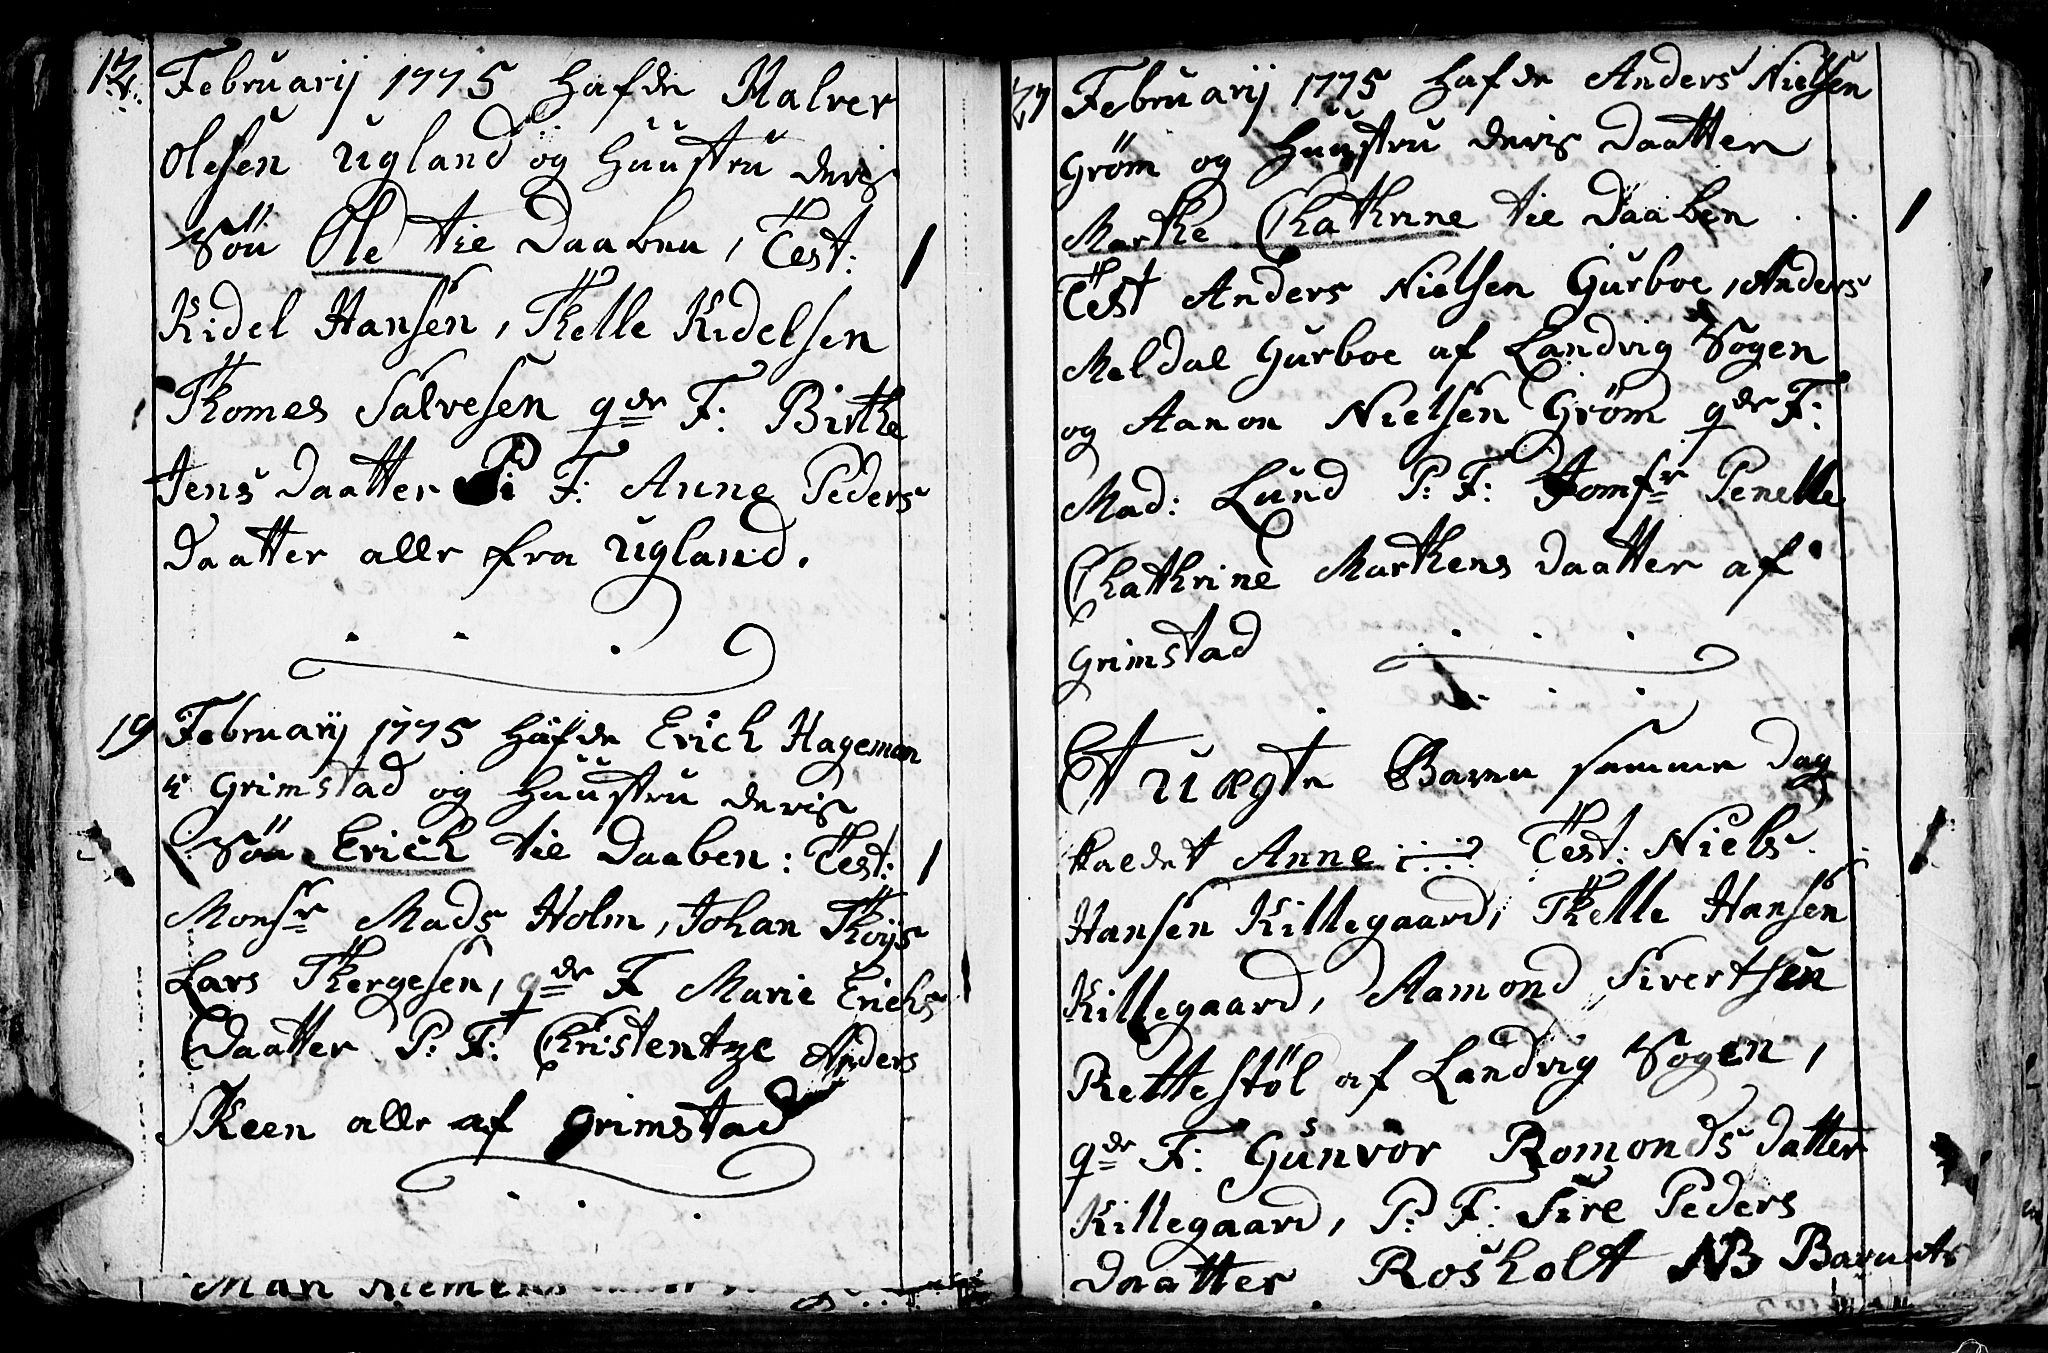 12. Februarij 1775 hafde Halver
Olesen Ugland og Huustru deris
Søn Ole tie Daaben, Test:
Kidel Hansen, Thelle Kidelsen
Thomes Salvesen gde F: Birthe
Jens Daatter P: F: Anne Peders
Daatter alle fra Ugland.
19 Februarij 1775 hafde Erich Hageman
i Grimstad og Huustru deris
Søn Erich tie Daaben: Test:
Monsr Mads Holm, Johan Thijs
Lars Thergesen, gde F Marie Erichs
Daatter P: F: Christentze Anders
Skeen alle af Grimstad
Februarij 1775 hafde Anders Nielsen
Grøm og Huustru deris Daatter
Marthe Chathrine tie Daaben
Test Anders Nielsen Gurboe, Anders
Meldal Gurboe af Landvig Sogen
og Aanon Nielsen Grøm gde F:
Mad: Lund P: F: Jomfr Penelle
Chathrine Marthens Daatter af
Grimstad
Et uægte Baren samme Dag
kaldet Anne Test: Niels
Hansen Killegaard, Thelle Hansen
Killegaard, Aamond Sivertsen
Rettestøl af Landvig Sogen,
gde F: Gunvor Romonds Datter
Killegaard, P: F: Sire Peders
Daatter Rosholt NB Barnets